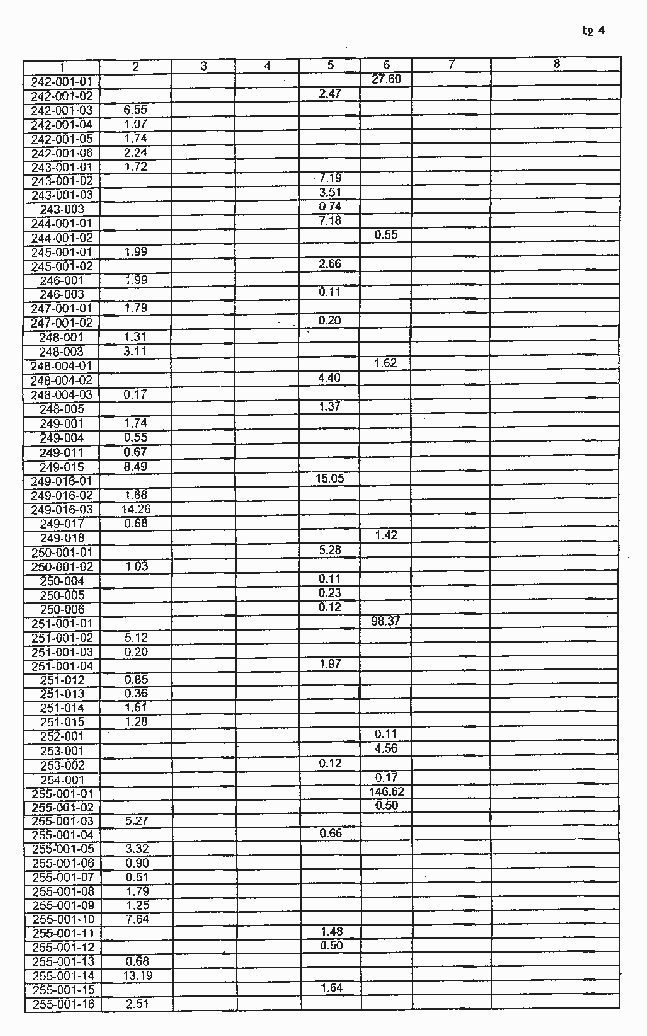 tp 4
1 2 3 4 5 6 7 8
242-001-01 27.60
242-001-02 2.47
242-001-03 6.55
242-001-04 1.07
242-001-05 1.74
242-001-06 2.24
243-001-01 1.72
243-001-02 7.19
243-001-03 3.51
243-003 0.74
244-001-01 7.18
244-001-02 0.55
245-001-01 1.99
245-001-02 2.66
246-001 1.99
246-003 0.11
247-001-01 1.79
247-001-02 0.20
248-001 1.31
248-003 3.11
248-004-01 1.62
248-004-02 4.40
248-004-03 0.17
248-005 1.37
249-001 1.74
249-004 0.55
249-011 0.67
249-015 8.49
249-016-01 15.05
249-016-02 1.88
249-016-03 14.26
249-017 0.68
249-018 1.42
250-001-01 5.28
250-001-02 1.03
250-004 0.11
250-005 0.23
250-006 0.12
251-001-01 98.37
251-001-02 5.12
251-001-03 0.20
251-001-04 1.97
251-012 0.85
251-013 0.36
251-014 1.61
251-015 1.28
252-001 0.11
253-001 4.56
253-002 0.12
254-001 0.17
255-001-01 146.62
255-001-02 0.50
255-001-03 5.27
255-001-04 0.66
255-001-05 3.32
255-001-06 0.90
255-001-07 0.51
255-001-08 1.79
255-001-09 1.25
255-001-10 7.64
255-001-11 1.48
255-001-12 0.50
255-001-13 0.68
255-001-14 13.19
255-001-15 1.64
255-001-16 2.51